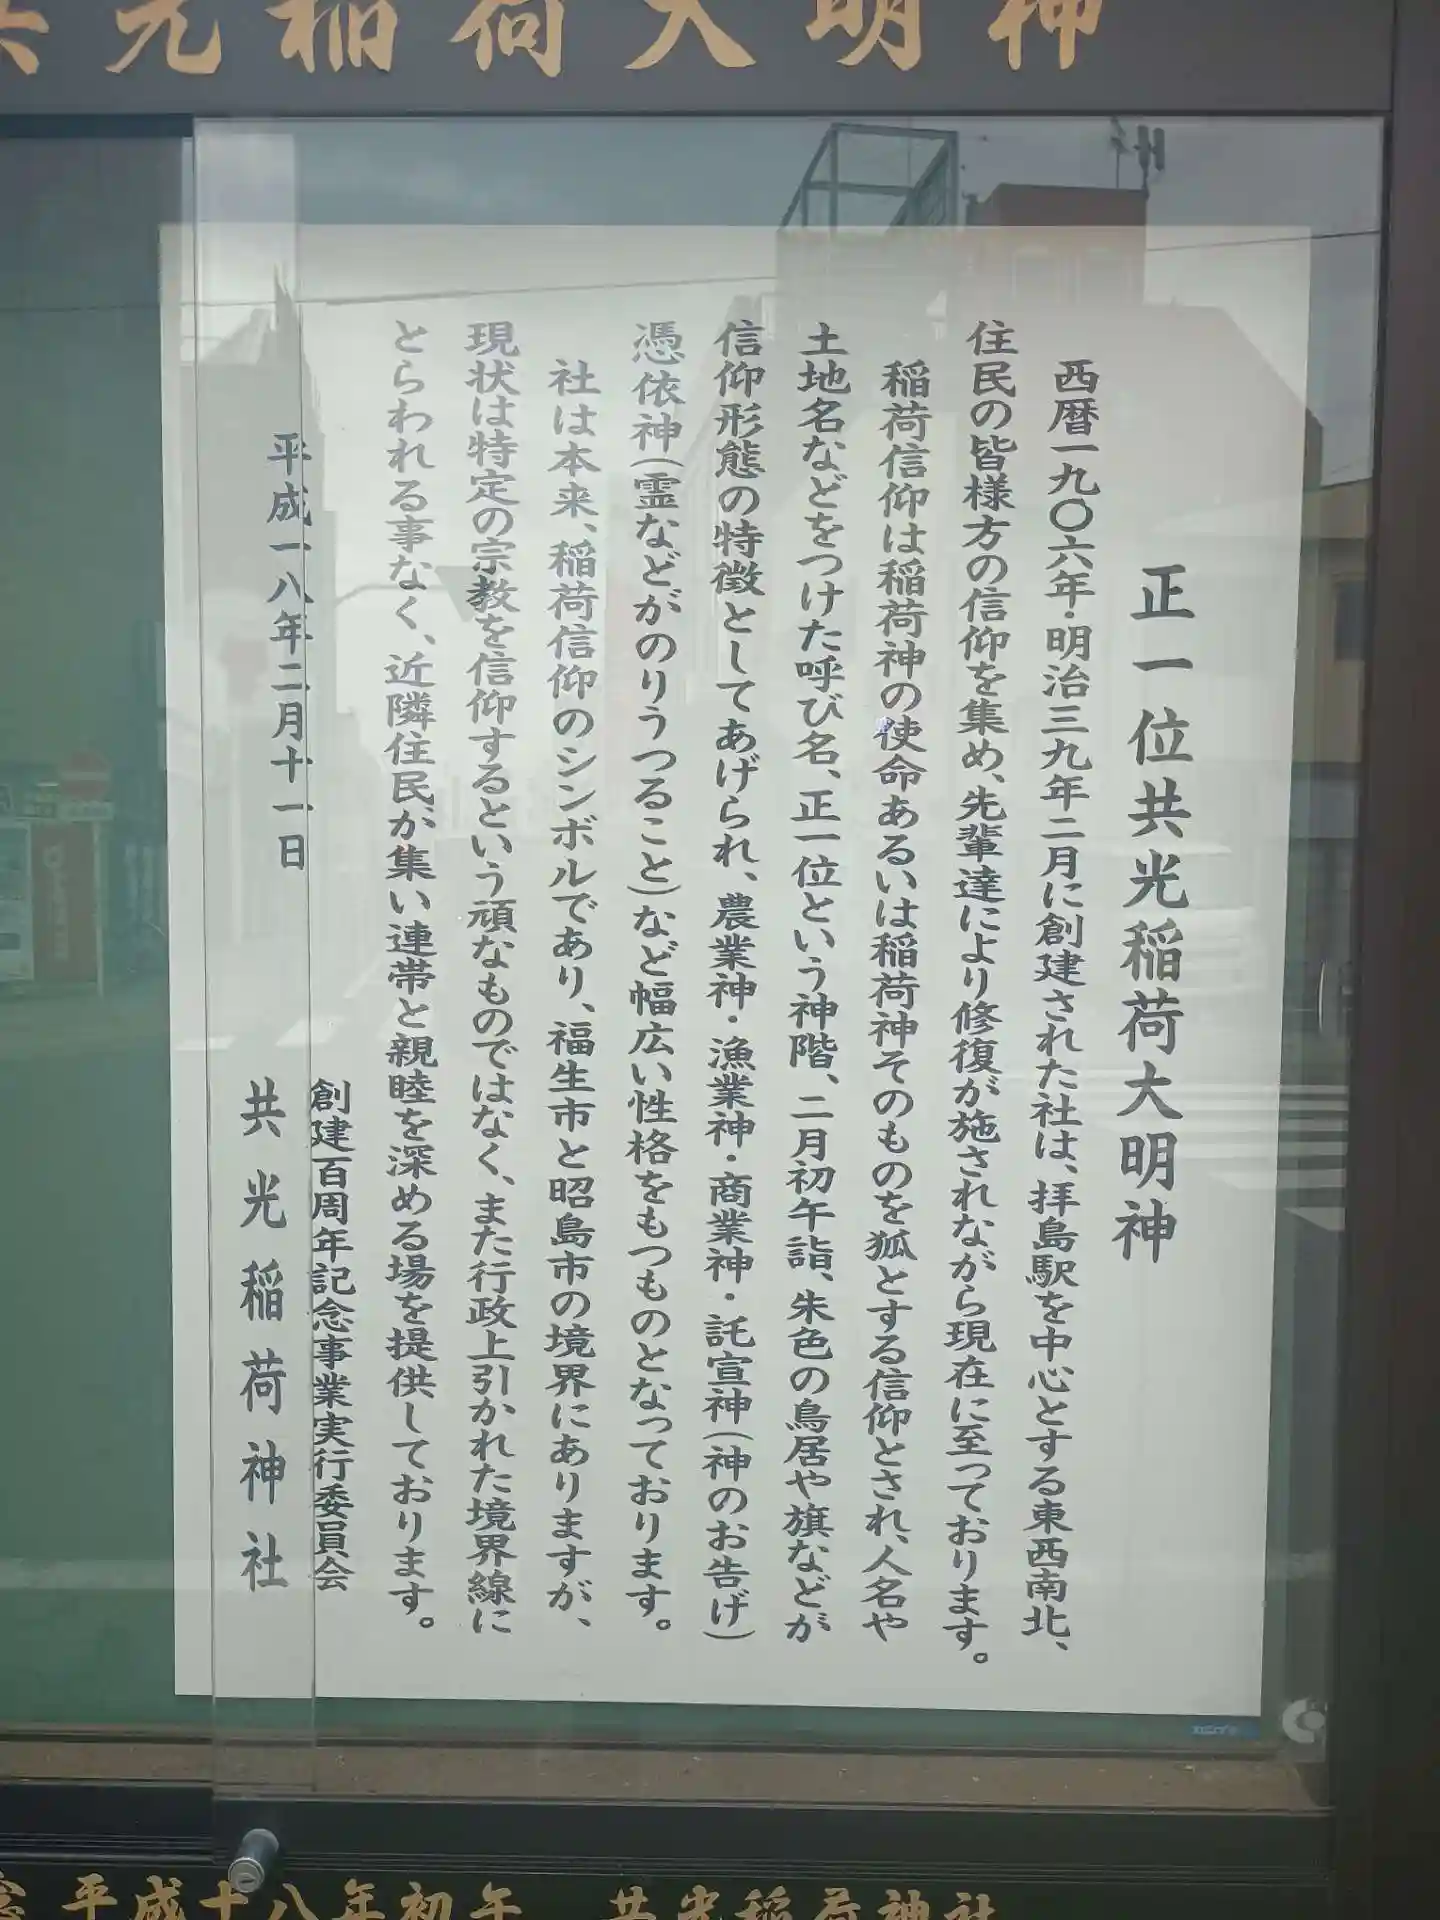 共光稲荷大明神
正一位共光稲荷大明神
西暦一九〇六年・明治三九年二月に創建された社は、拝島駅を中心とする東西南北、
住民の皆様方の信仰を集め、先輩達により修復が施されながら現在に至っております。
稲荷信仰は稲荷神の使命あるいは稲荷神そのものを狐とする信仰とされ、人名や
土地名などをつけた呼び名、正一位という神階、二月初午詣、朱色の鳥居や旗などが
信仰形態の特徴としてあげられ、農業神・漁業神・商業神・託宣神(神のお告げ)
憑依神(霊などがのりうつること)など幅広い性格をもつものとなっております。
社は本来、稲荷信仰のシンボルであり、福生市と昭島市の境界にありますが、
現状は特定の宗教を信仰するという頑なものではなく、また行政上引かれた境界線に
とらわれる事なく、近隣住民が集い連帯と親睦を深める場を提供しております。
創建百周年記念事業実行委員会
平成一八年二月十一日
共光稲荷神社
念 平成十八年初午 共光稲荷神社